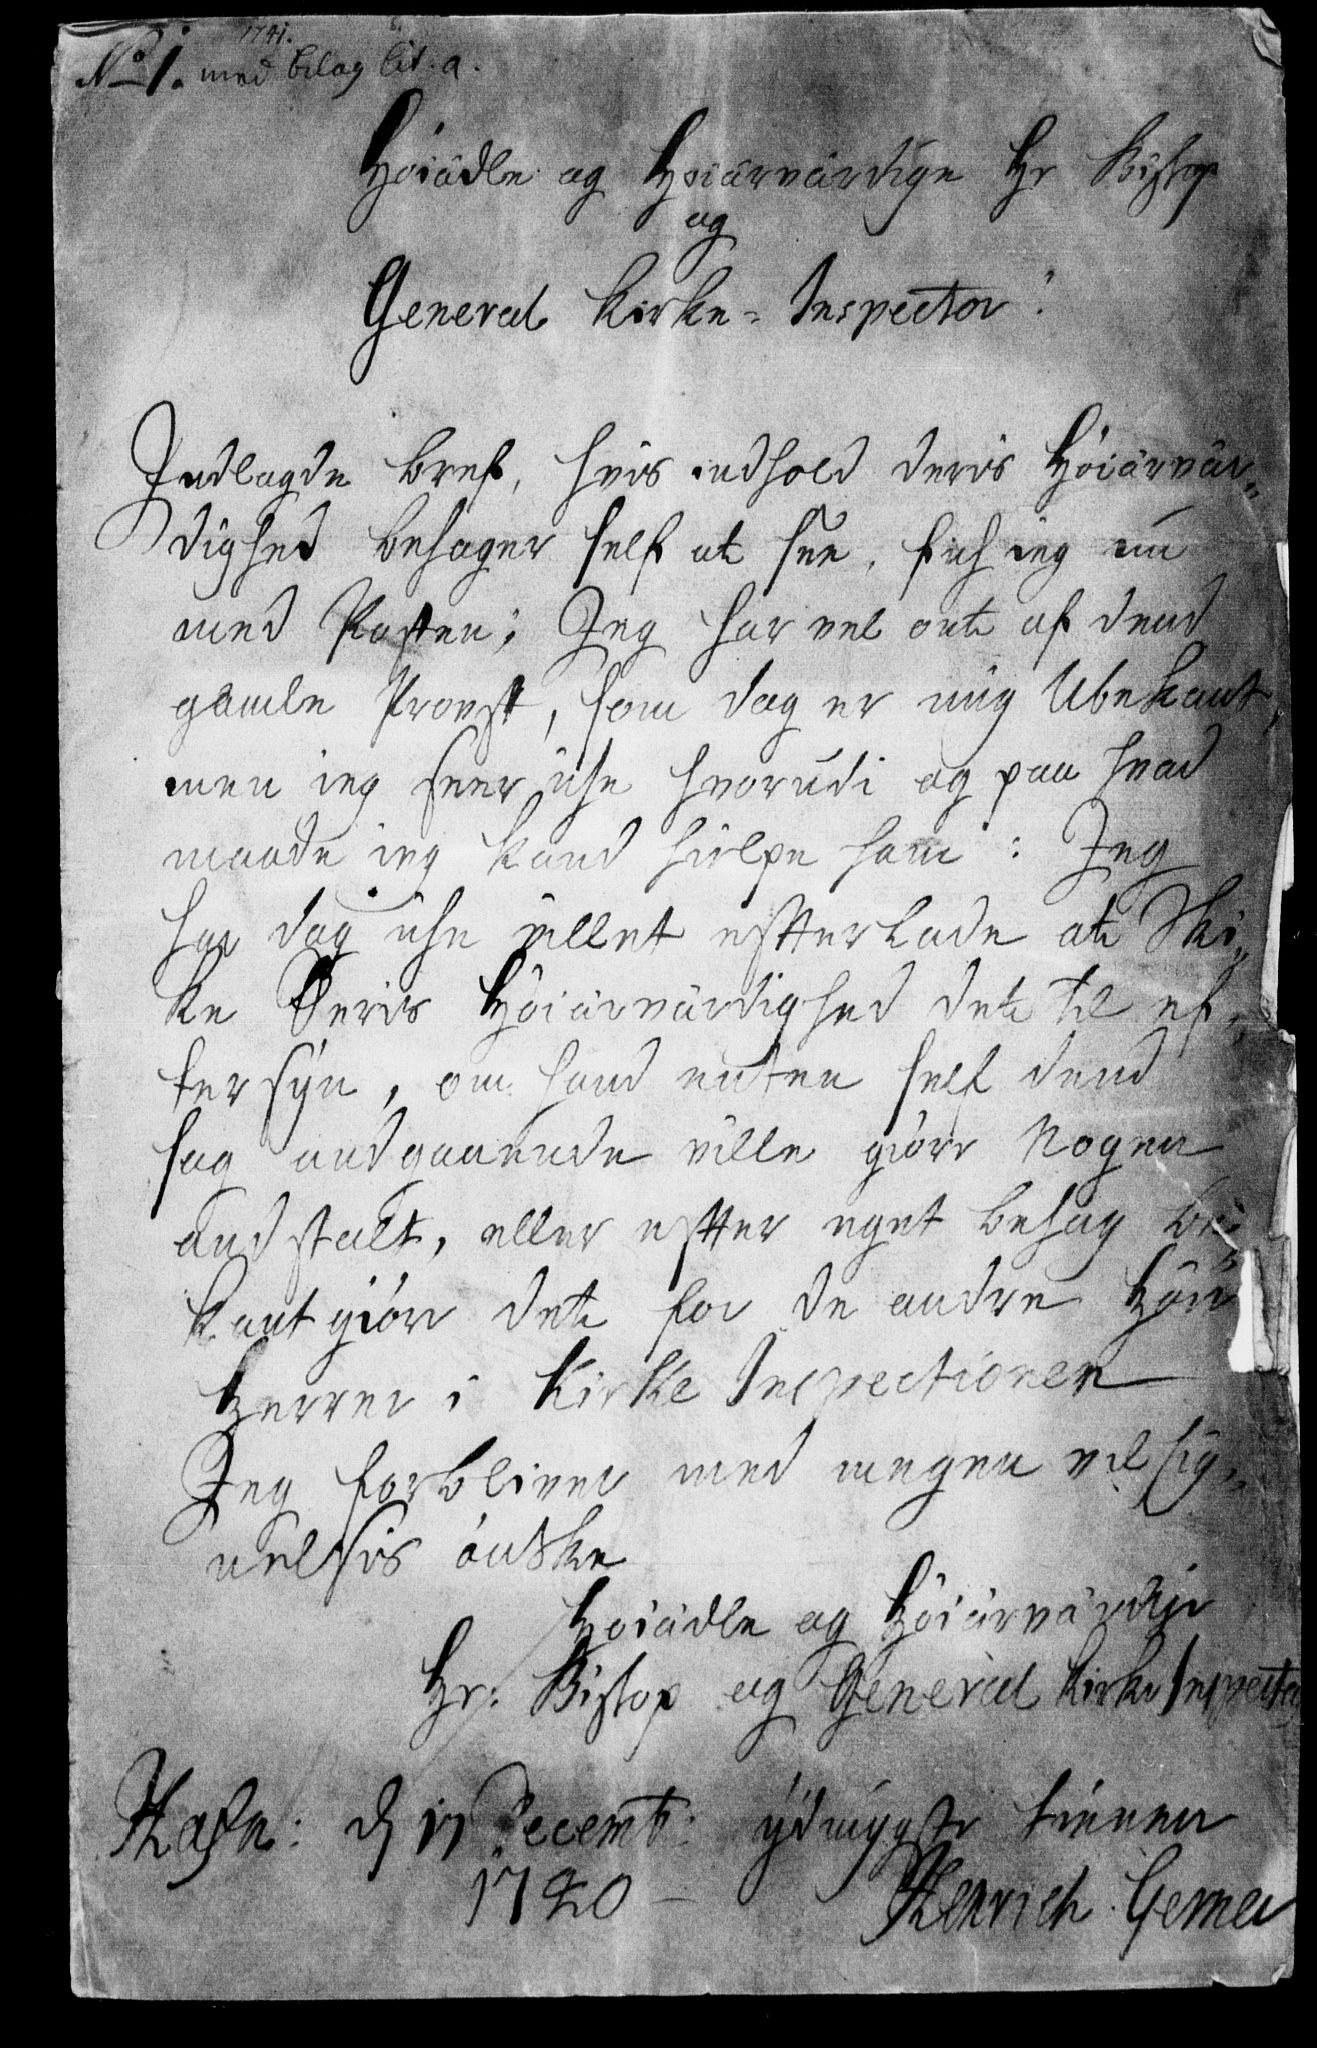 1741.
No 1. med bilag lit. a.
Höiädle og Höiärvärdige Hr Bisfop
og
General Kirke-Inspector:
Indlagde bref, hvis indhold deris Höiärvär„
dighed behager self at see, fich ieg nu
med Posten; Jeg har vel ont af dend
gamle Provst, som dog er mig Ubekant,
men ieg seer iche hvorudi og paa hvad
maade ieg kand hielpe ham: Jeg
har dog iche villet effterlade at Ski„
ke Deris Höiärvärdighed det til ef„
tersÿn, om hand enten self dend
sag andgaaende ville giöre Nogen
andstalt, eller effter eget behag be„
kantgiöre det for de andre Höie
Herrer i Kirke Inspectionen
Jeg forbliver med megen velsig„
nelsis önske
Höiädle og Höiärvärdige
Hr: Bisfop og General Kirke Inspector
Hafn: d 17 Decemb: ÿdmÿgste tienner
1740 Henrich Gerner